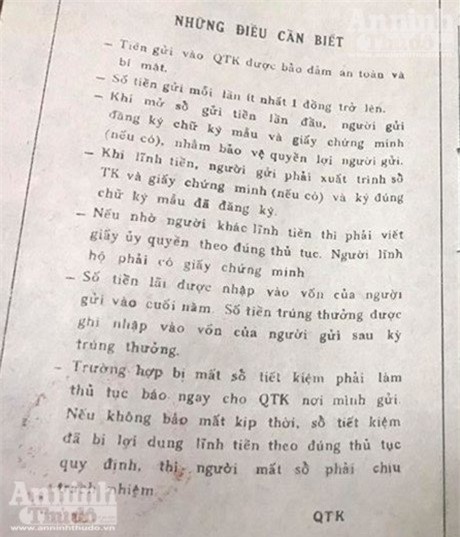 Anninh
Thủđô
NHỮNG ĐIỀU CẦN BIẾT
– Tiền gửi vào QTK được bảo đảm an toàn và
bí mật.
– Số tiền gửi mỗi lần ít nhất 1 đồng trở lên.
– Khi mở sổ gửi tiền lần đầu, người gửi
đăng ký chữ ký mẫu và giấy chứng minh
(nếu có), nhằm bảo vệ quyền lợi người gửi.
– Khi lĩnh tiền, người gửi phải xuất trình sổ
TK và giấy chứng minh (nếu có) và ký đúng
chữ ký mẫu đã đăng ký.
– Nếu nhờ người khác lĩnh tiền thì phải viết
giấy ủy quyền theo đúng thủ tục. Người lĩnh
hộ phải có giấy chứng minh
– Số tiền lãi được nhập vào vốn của người
gửi vào cuối năm. Số tiền trúng thưởng được
ghi nhập vào vốn của người gửi sau kỳ
trúng thưởng.
– Trường hợp bị mất sổ tiết kiệm phải làm
thủ tục báo ngay cho QTK nơi mình gửi.
Nếu không báo mất kịp thời, sổ tiết kiệm
đã bị lợi dụng lĩnh tiền theo đúng thủ tục
quy định, thì người mất sổ phải chịu
trách nhiệm.
QTK
Anninh
Thủđô
www.anninhthudo.vn